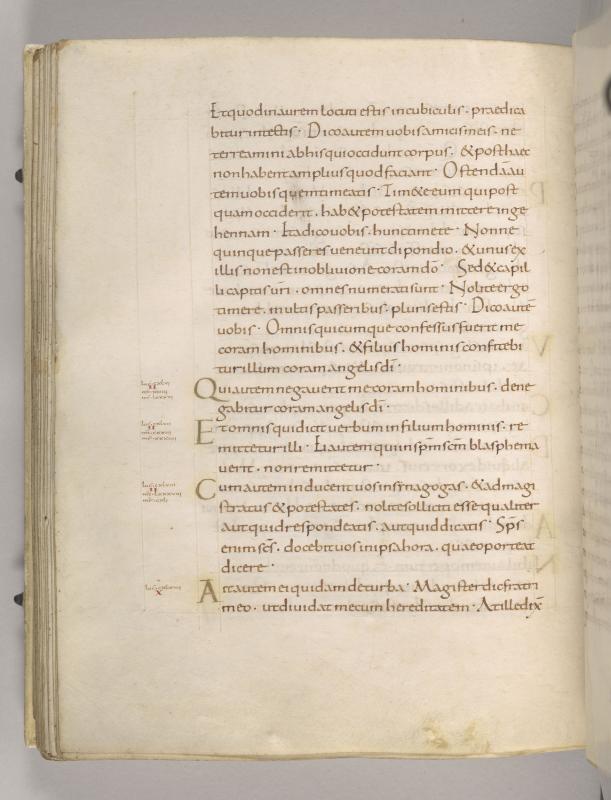 Et quod in aurem locuti estis in cubiculis · praedica
bitur in tectis · Dico autem uobis amicis meis · ne
terreamini ab his qui occidunt corpus · & post haec
non habent amplius quod faciant · Ostendā au
tem uobis quem timeatis · Tim&e eum qui post
quam occiderit · hab& potestatem mittere in ge
hennam · Ita dico uobis · hunc timete · Nonne
quinque passeres ueneunt dipondio · & unus ex
illis non est in obliuione coram dō · Sed & capil
li capitis uri · omnes numerati sunt · Nolite ergo
timere · multis passeribus · pluris estis · Dico autē
uobis · Omnis quicumque confessus fuerit me
coram hominibus · & filius hominis confitebi
tur illum coram angelis dī ·
Qui autem negauerit me coram hominibus · dene
gabitur coram angelis dī ·
Et omnis qui dicit uerbum in filium hominis · re
mittetur illi · Ei autem qui in spm scm blasphema
uerit · non remittetur ·
Cum autem inducent uos in synagogas · & ad magi
stratus & potestates · nolite solliciti esse qualiter
aut quid respondeatis · aut quid dicatis · Sps
enim scs · docebit uos in ipsa hora · quae oporteat
dicere ·
Ait autem ei quidam de turba · Magister dic fratri
meo · ut diuidat mecum hereditatem · At ille dix̄